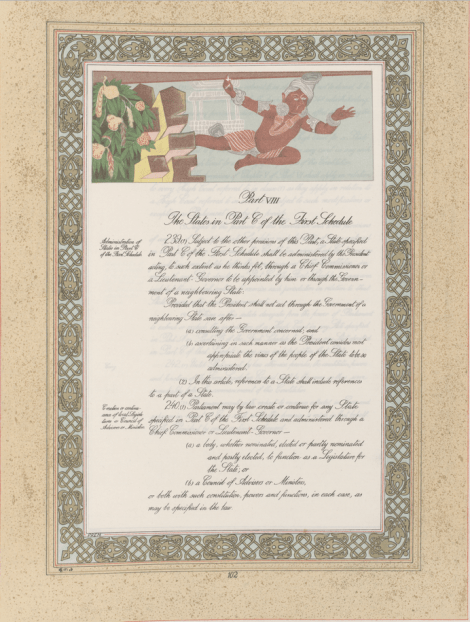 Part VIII
The States in Part C of the First Schedule
Administration of
States in Part C
of the First Schedule.
239. (1) Subject to the other provisions of this Part, a State specified
in Part C of the First Schedule shall be administered by the President
acting, to such extent as he thinks fit, through a Chief Commissioner or
a Lieutenant-Governor to be appointed by him or through the Govern-
ment of a neighbouring State:
Provided that the President shall not act through the Government of a
neighbouring State save after—
(a) consulting the Government concerned; and
(b) ascertaining in such manner as the President considers most
appropriate the views of the people of the State to be so
administered.
(2) In this article, references to a State shall include references
to a part of a State.
Creation or continu-
ance of local Legisla-
tures or Council of
Advisers or Ministers.
240. (1) Parliament may by law create or continue for any State
specified in Part C of the First Schedule and administered through a
Chief Commissioner or Lieutenant-Governor—
(a) a body, whether nominated, elected or partly nominated
and partly elected, to function as a Legislature for
the State; or
(b) a Council of Advisers or Ministers,
or both with such constitution, powers and functions, in each case, as
may be specified in the law.
102